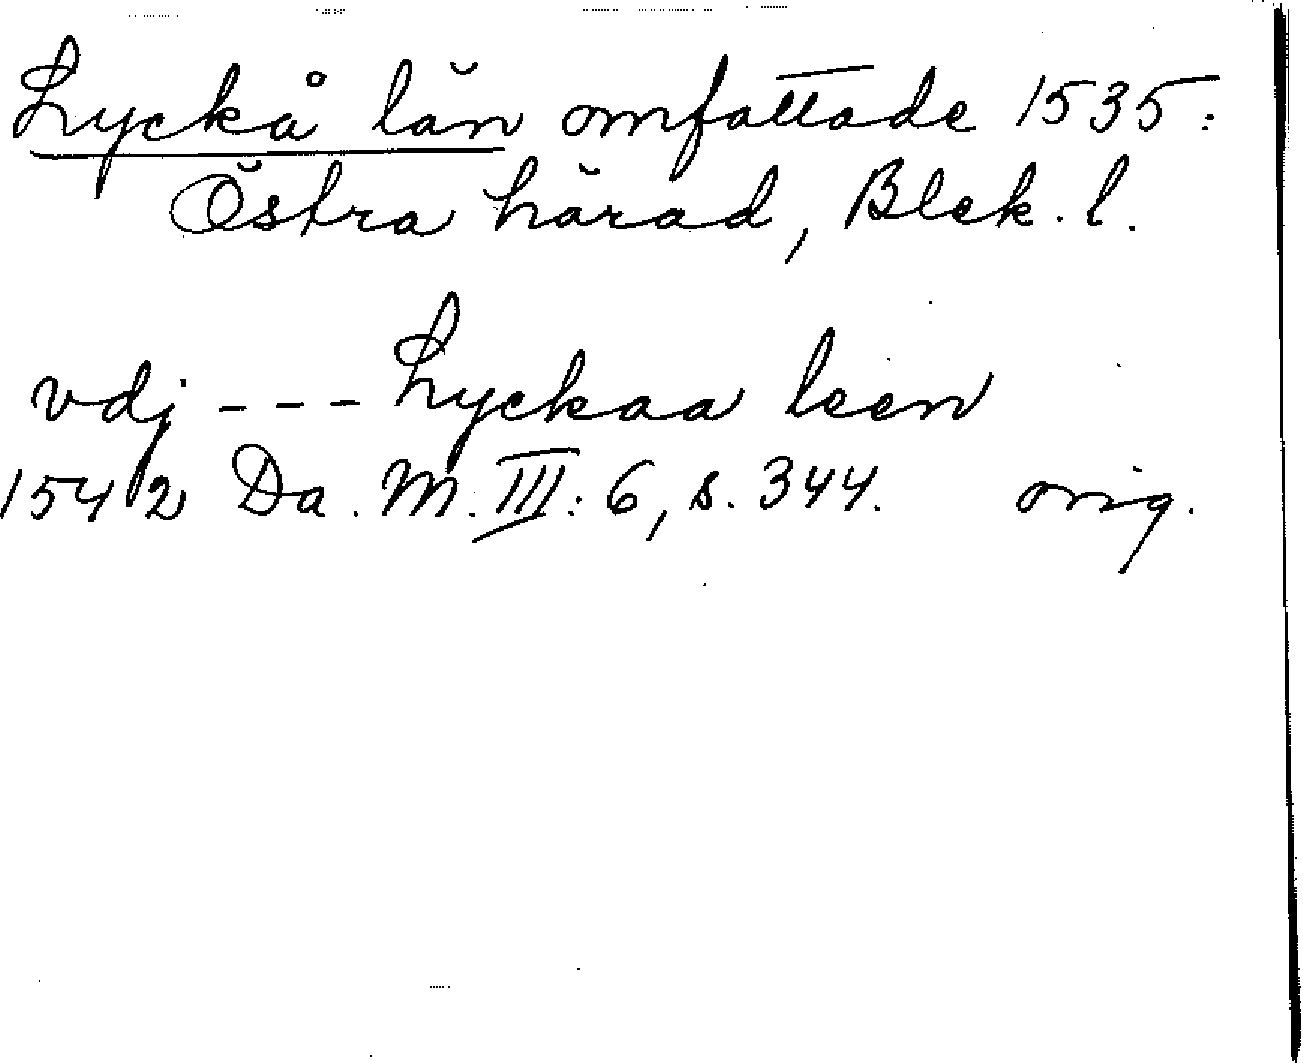 Lyckå län omfattade 1535:
Östra härad, Blek. l.
vdj --- Lyckaa leen
1542 Da. M. III: 6, s. 344. orig.